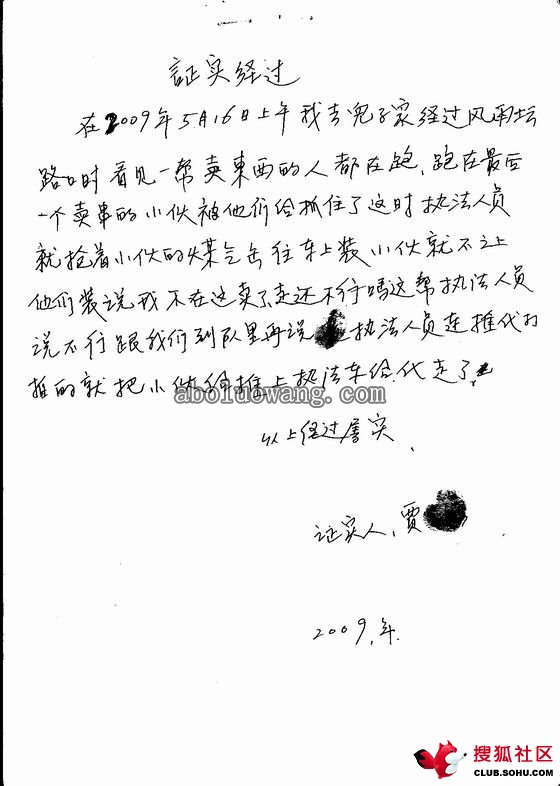 証实经过
在2009年5月16日上午我去儿子家经过风雨坛
路口时看见一帮卖東西的人都在跑、跑在最后
一个卖串的小伙被他们给抓住了这时执法人员
就抢着小伙的煤气缶往车上装小伙就不让
他们装说我不在这卖了走还不行吗这帮执法人员
说不行跟我们到队里再说 执法人员连推代打
推的就把小伙给推上执法车给代走了
aboluowang.com
以上经过属实、
证实人、贾
2009.年.
搜狐社区
CLUB.SOHU.COM